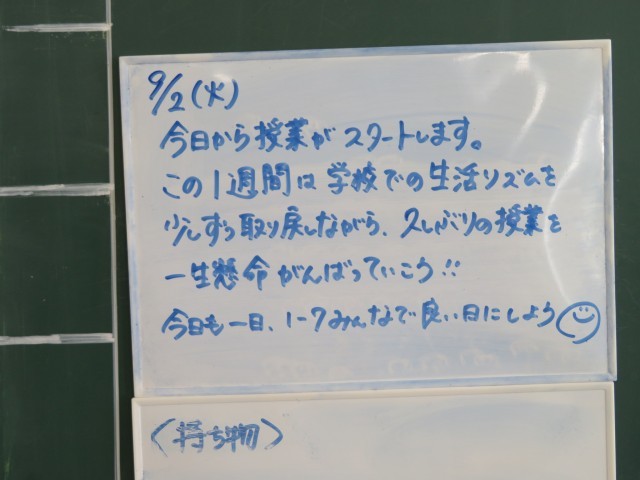 9/2(火)
今日から授業がスタートします。
この1週間は学校での生活リズムを
少しずつ取り戻しながら、久しぶりの授業を
一生懸命がんばっていこう!!
今日も一日、1-7みんなで良い日にしよう
〈持ち物〉